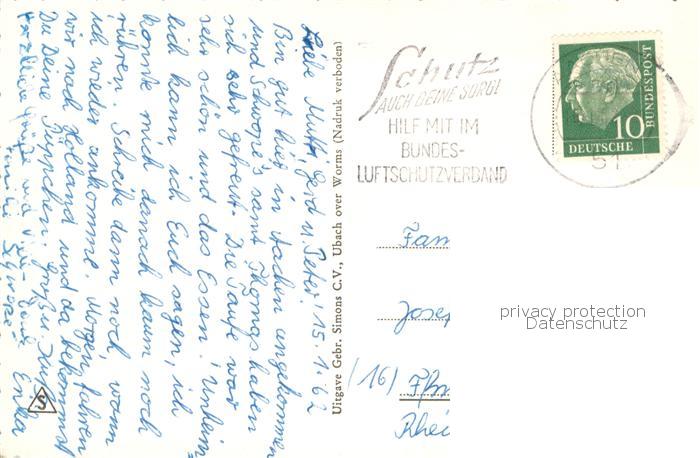 Liebe Mutti, Gerd u. Peter! 15.1.62
Bin gut hier in Aachen angekommen
und Schwope's samt Thomas haben
sich sehr gefreut. Die Taufe war
sehr schön und das Essen. Unheim-
lich kann ich Euch sagen, ich
konnte mich danach kaum noch
rühren. Schreibe dann noch, wann
ich wieder ankomme. Morgen fahren
wir nach Holland und da bekommst
Du Deine Püppchen. Gruß u. Kuß
Herzliche Grüße
Familie
Uitgave Gebr. Simons C.V., Ubach over Worms (Nadruk verboden)
Schutz
AUCH DEINE SORGE
HILF MIT IM
BUNDES-
LUFTSCHUTZVERBAND
10
DEUTSCHE
BUNDESPOST
51
Fam
Josep
(16) Ffm
Rhei
privacy protection
Datenschutz
S